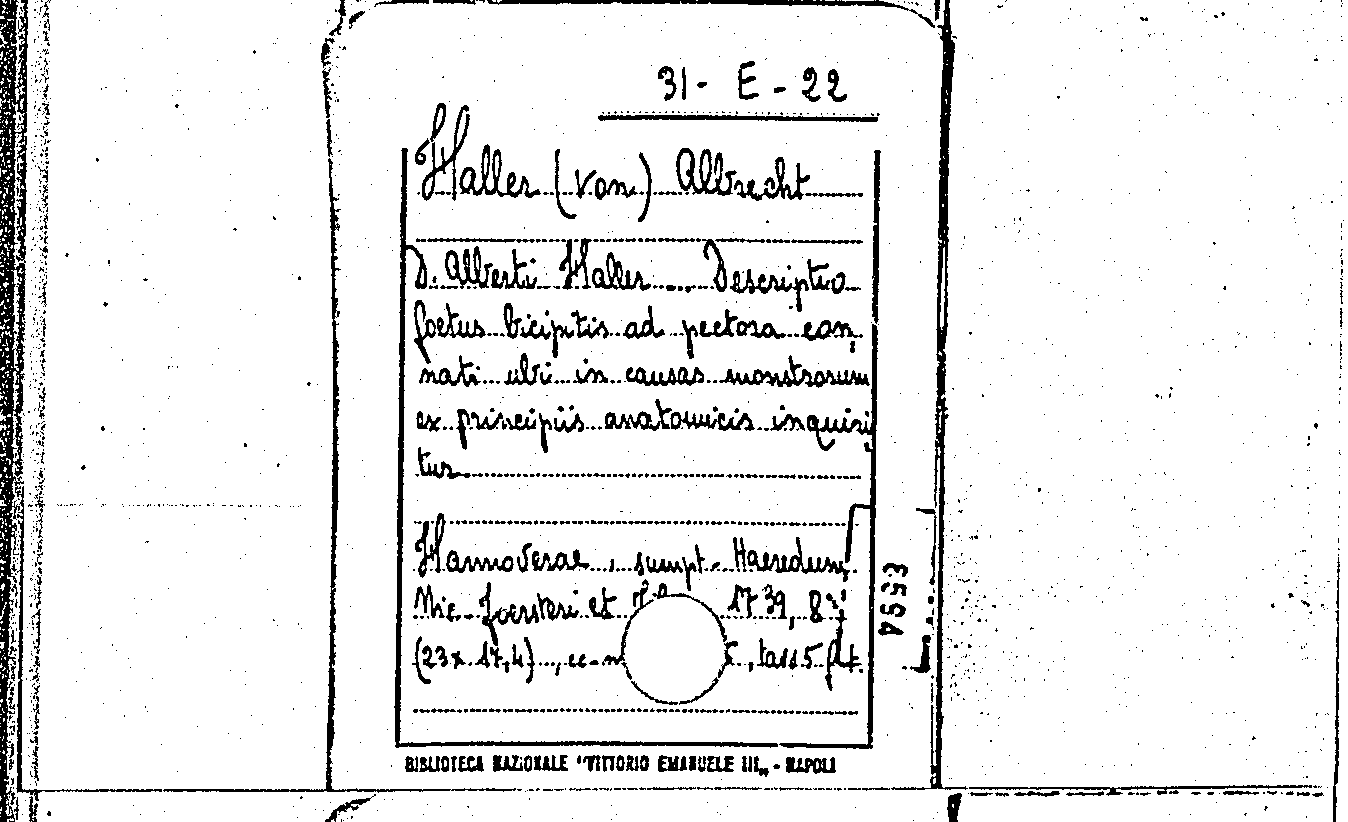 31 - E - 22
Haller (von) Albrecht
D. Alberti Haller ... Descriptio
foetus bicipitis ad pectora con,
nati ubi in causas monstrorum
ex principiis anatomicis inquiri,
tur
Hannoverae, sumpt. Haeredum,
Nic. Foersteri et 1739, 8°;
(23x 17,4)
3594
BIBLIOTECA NAZIONALE "VITTORIO EMANUELE III„ - NAPOLI